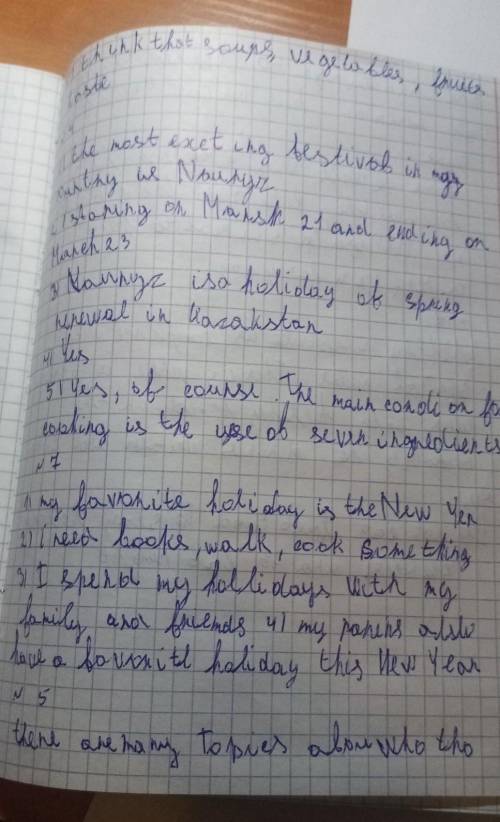 I think that soups, vegetables, fruits
taste
1) the most exeting festival in my
cuntry is Nauryz
2) staring on Marsh 21 and ending on
March 23
3) Nauryz is a holiday of spring
renewal in Kazakstan
4) Yes
5) Yes, of course. The main condi on for
cooking is the use of seven ingredients
№7
1) my favorite holiday is the New Yer
2) I reed books, walk, cook something
3) I spend my hollidays with my
family and friends 4) my parens allso
have a favorite holiday this New Year
№5
there are many topics who